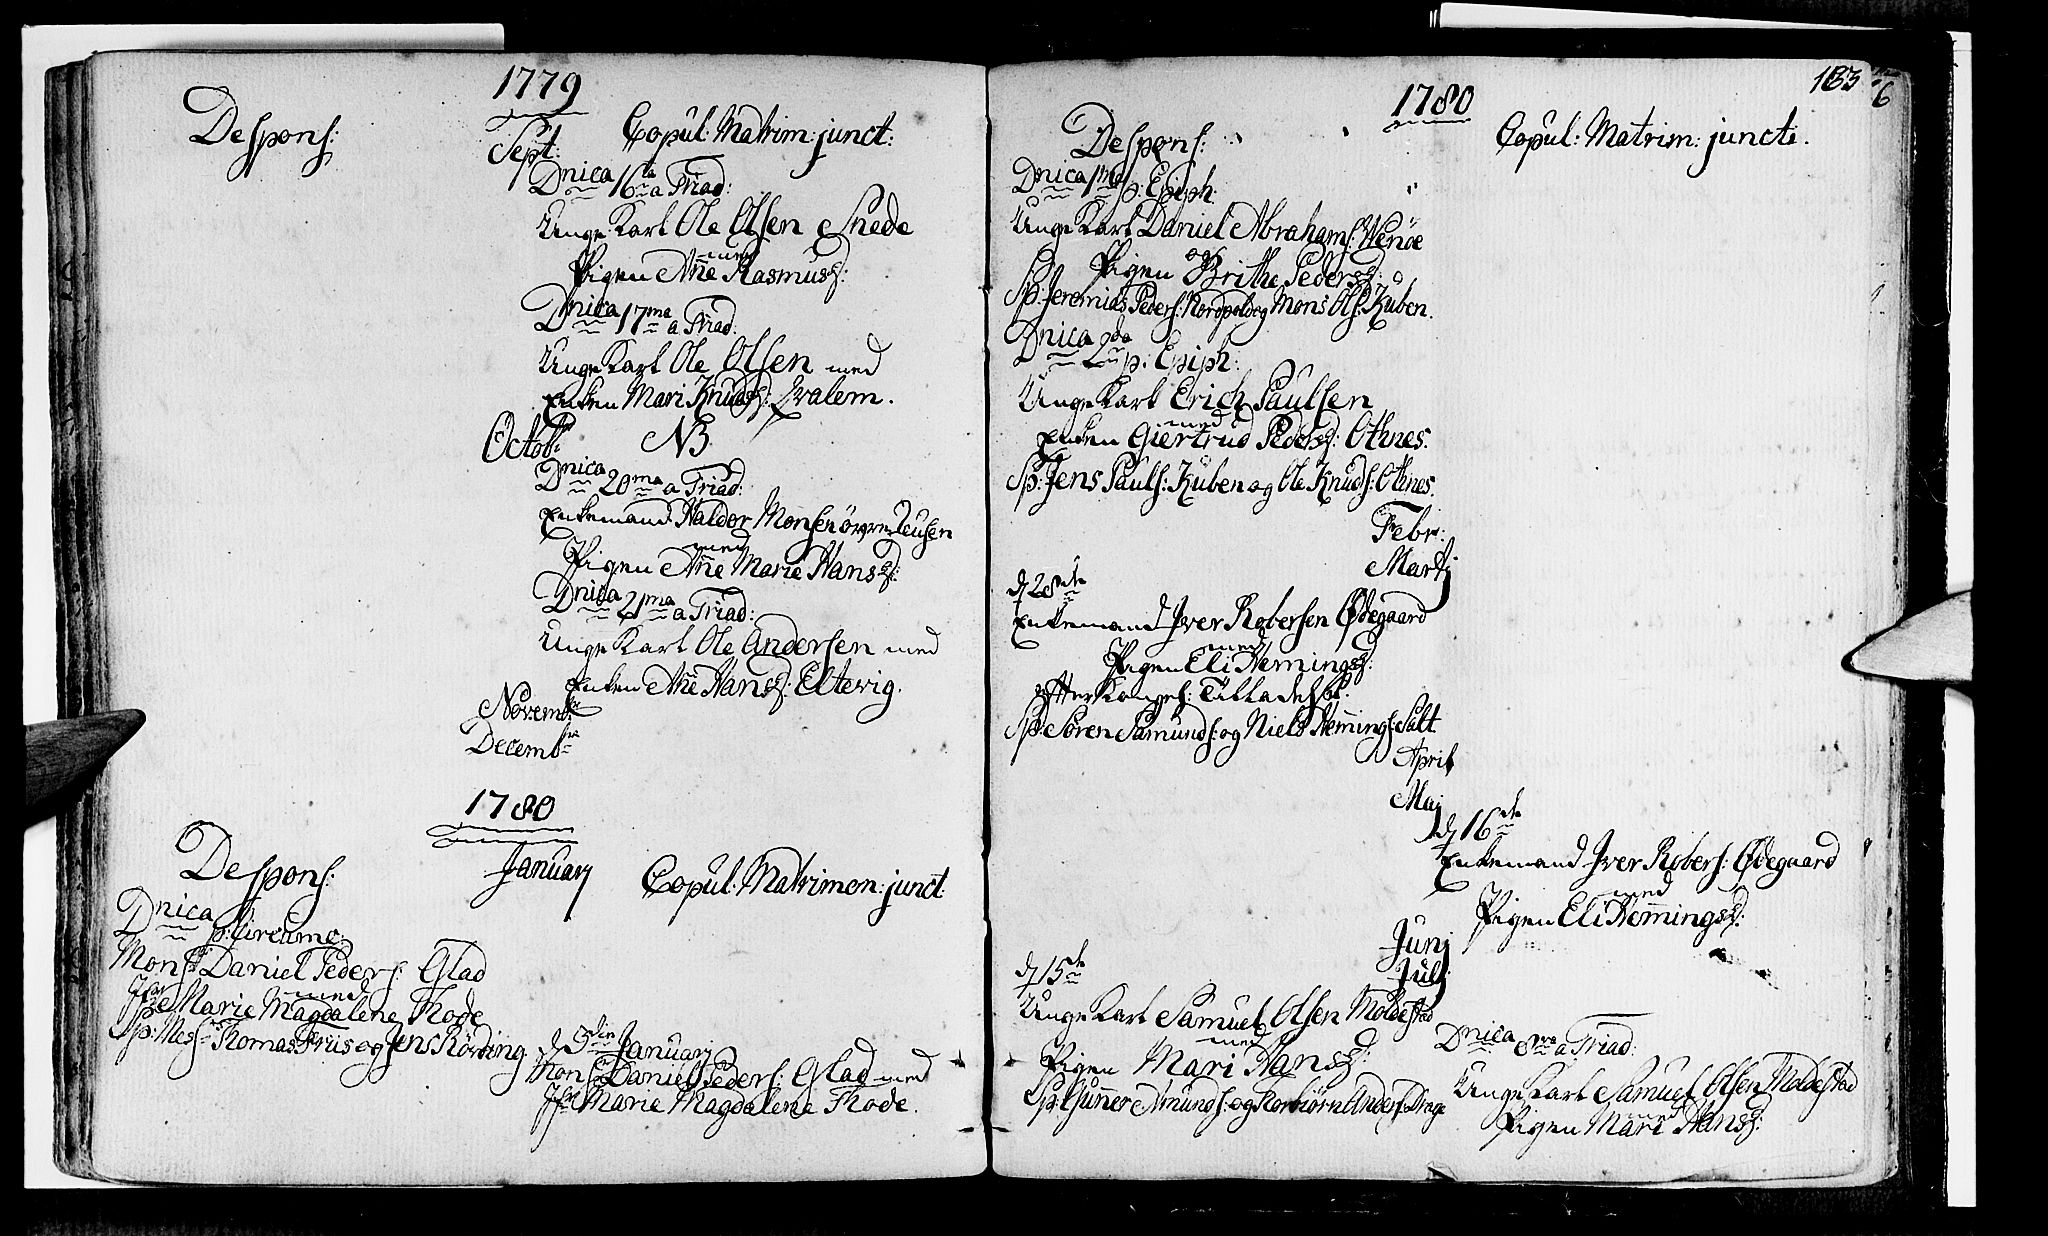 1779
Despons:
Sept:
Copul: Matrim: junct:
Dnica 16ta a Triad:
Unge Karl Ole Olsen Snede
med
Pigen Ane Rasmusd:
Dnica 17ma a Triad:
Unge Karl Ole Olsen med
Enken Mari Knudsd: Qvalem.
Octob: NB
Dnica 20ma a Triad:
Enkemand Haldor Monsen
med
Pigen Ane Marie Hansd:
Dnica 21ma a Triad:
Unge Karl Ole Andersen med
Enken Ane Hansd: Eltevig.
Novembr
Decembr
1780
Despons:
January
Copul: Matrimon: junct:
Dnica p: Circumc:
Monsr Daniel Peders: Glad
med
Jfr Marie Magdalene Thode
Sp: Messrs Thomas Friis og Jens Rörding.
d 5te January
Mons Daniel Peders: Glad med
Jfr Marie Magdalene Thode.
183
6
1780
Despons:
Copul: Matrim: juncti.
Dnica 1ma p: Epiph:
Unge Karl Daniel Abrahams: Wenöe
og
Pigen Brithe Pedersd:
Sp: Jeremias Peders: og Mons Ols: Kuben.
Dnica 2da p: Epiph:
Unge Karl Erich Paulsen
med
Enken Giertrud Pedersd: Othnes.
Sp: Jens Pauls: Kuben og Ole Knuds: Othnes.
Febr:
Martj
d 28de
Enkemand Iver Robersen Ødegaard
med
Pigen Eli Hemingsd:
efter Konges: Tilladelse.
Sp: Sören Samunds: og Niels Hemings: Salt
April
Maj
d 16de
Enkemand Iver Robers: Ødegaard
med
Pigen Eli Hemingsd:
Junj
Julj
d 15de
Unge Karl Samuel Olsen Moldestad
med
Pigen Mari Hansd:
Sp: Guner Amunds: og Torbiörn Anders: Drage
Dnica 8va a Triad:
Unge Karl Samuel Olsen Moldestad
med
Pigen Mari Hansd: